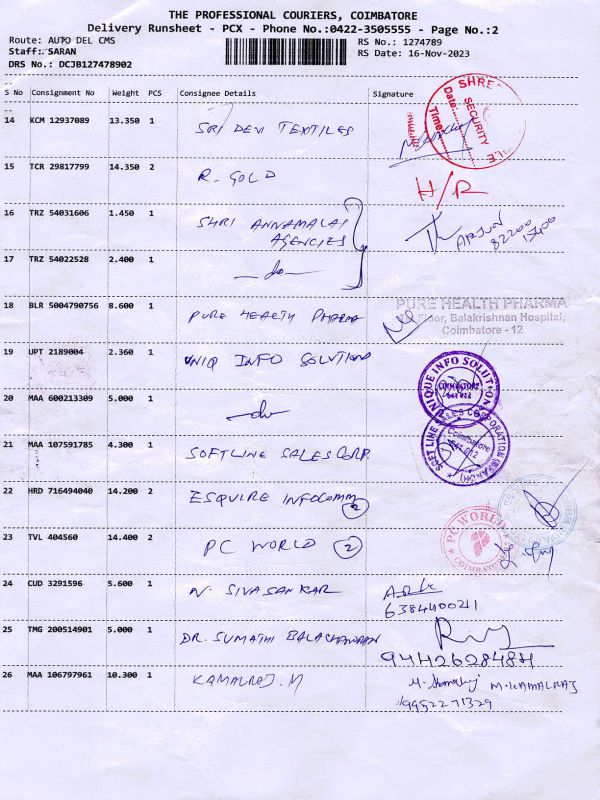 THE PROFESSIONAL COURIERS, COIMBATORE
Delivery Runsheet - PCX - Phone No.:0422-3505555 - Page No.:2
Route: AUTO DEL CMS
RS No.: 1274789
Staff: SARAN
RS Date: 16-Nov-2023
DRS No.: DCJB127478902
S No Consignment No Weight PCS Consignee Details Signature
14 KCM 12937089 13.350 1 SRI DEVI TEXTILES
SHRE
Date:
Time:
SECURITY
15 TCR 29817799 14.350 2 R. GOLD H/R
16 TRZ 54031606 1.450 1 SHRI ANNAMALAI AGENCIES
ARJUN
82200
15400
17 TRZ 54022528 2.400 1 —do—
18 BLR 5004790756 8.600 1 PURE HEALTH PHARMA
PURE HEALTH PHARMA
Floor, Balakrishnan Hospital,
Coimbatore - 12
19 UPT 2189004 2.360 1 UNIQ INFO SOLUTION
UNIQUE INFO SOLUTION
COIMBATORE
641 012
20 MAA 600213309 5.000 1 —do—
21 MAA 107591785 4.300 1 SOFTLINE SALES CORP.
Coimbatore
641 012
22 HRD 716494040 14.200 2 ESQUIRE INFOCOMM 2
23 TVL 404560 14.400 2 PC WORLD 2
PC WORLD
COIMBATORE
24 CUD 3291596 5.600 1 N. SIVASANKAR
6384400211
25 TMG 200514901 5.000 1 DR. SUMATHI BALACHANDRAN
9442628484
26 MAA 106797961 10.300 1 KAMALRAJ. M
M. KAMALRAJ
9952271329